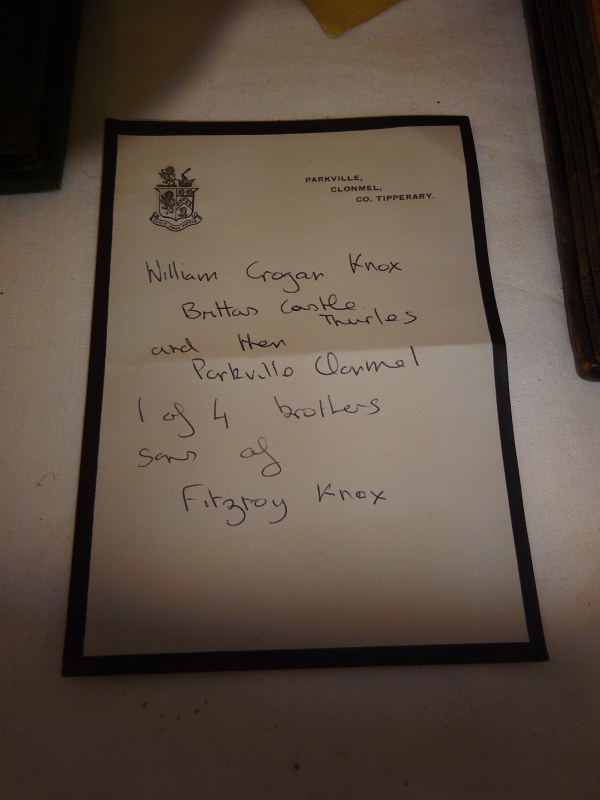 PARKVILLE,
CLONMEL,
CO. TIPPERARY.
William Crogan Knox
Brittas Castle
Thurles
and then
Parkville Clonmel
1 of 4 brothers
sons of
Fitzroy Knox